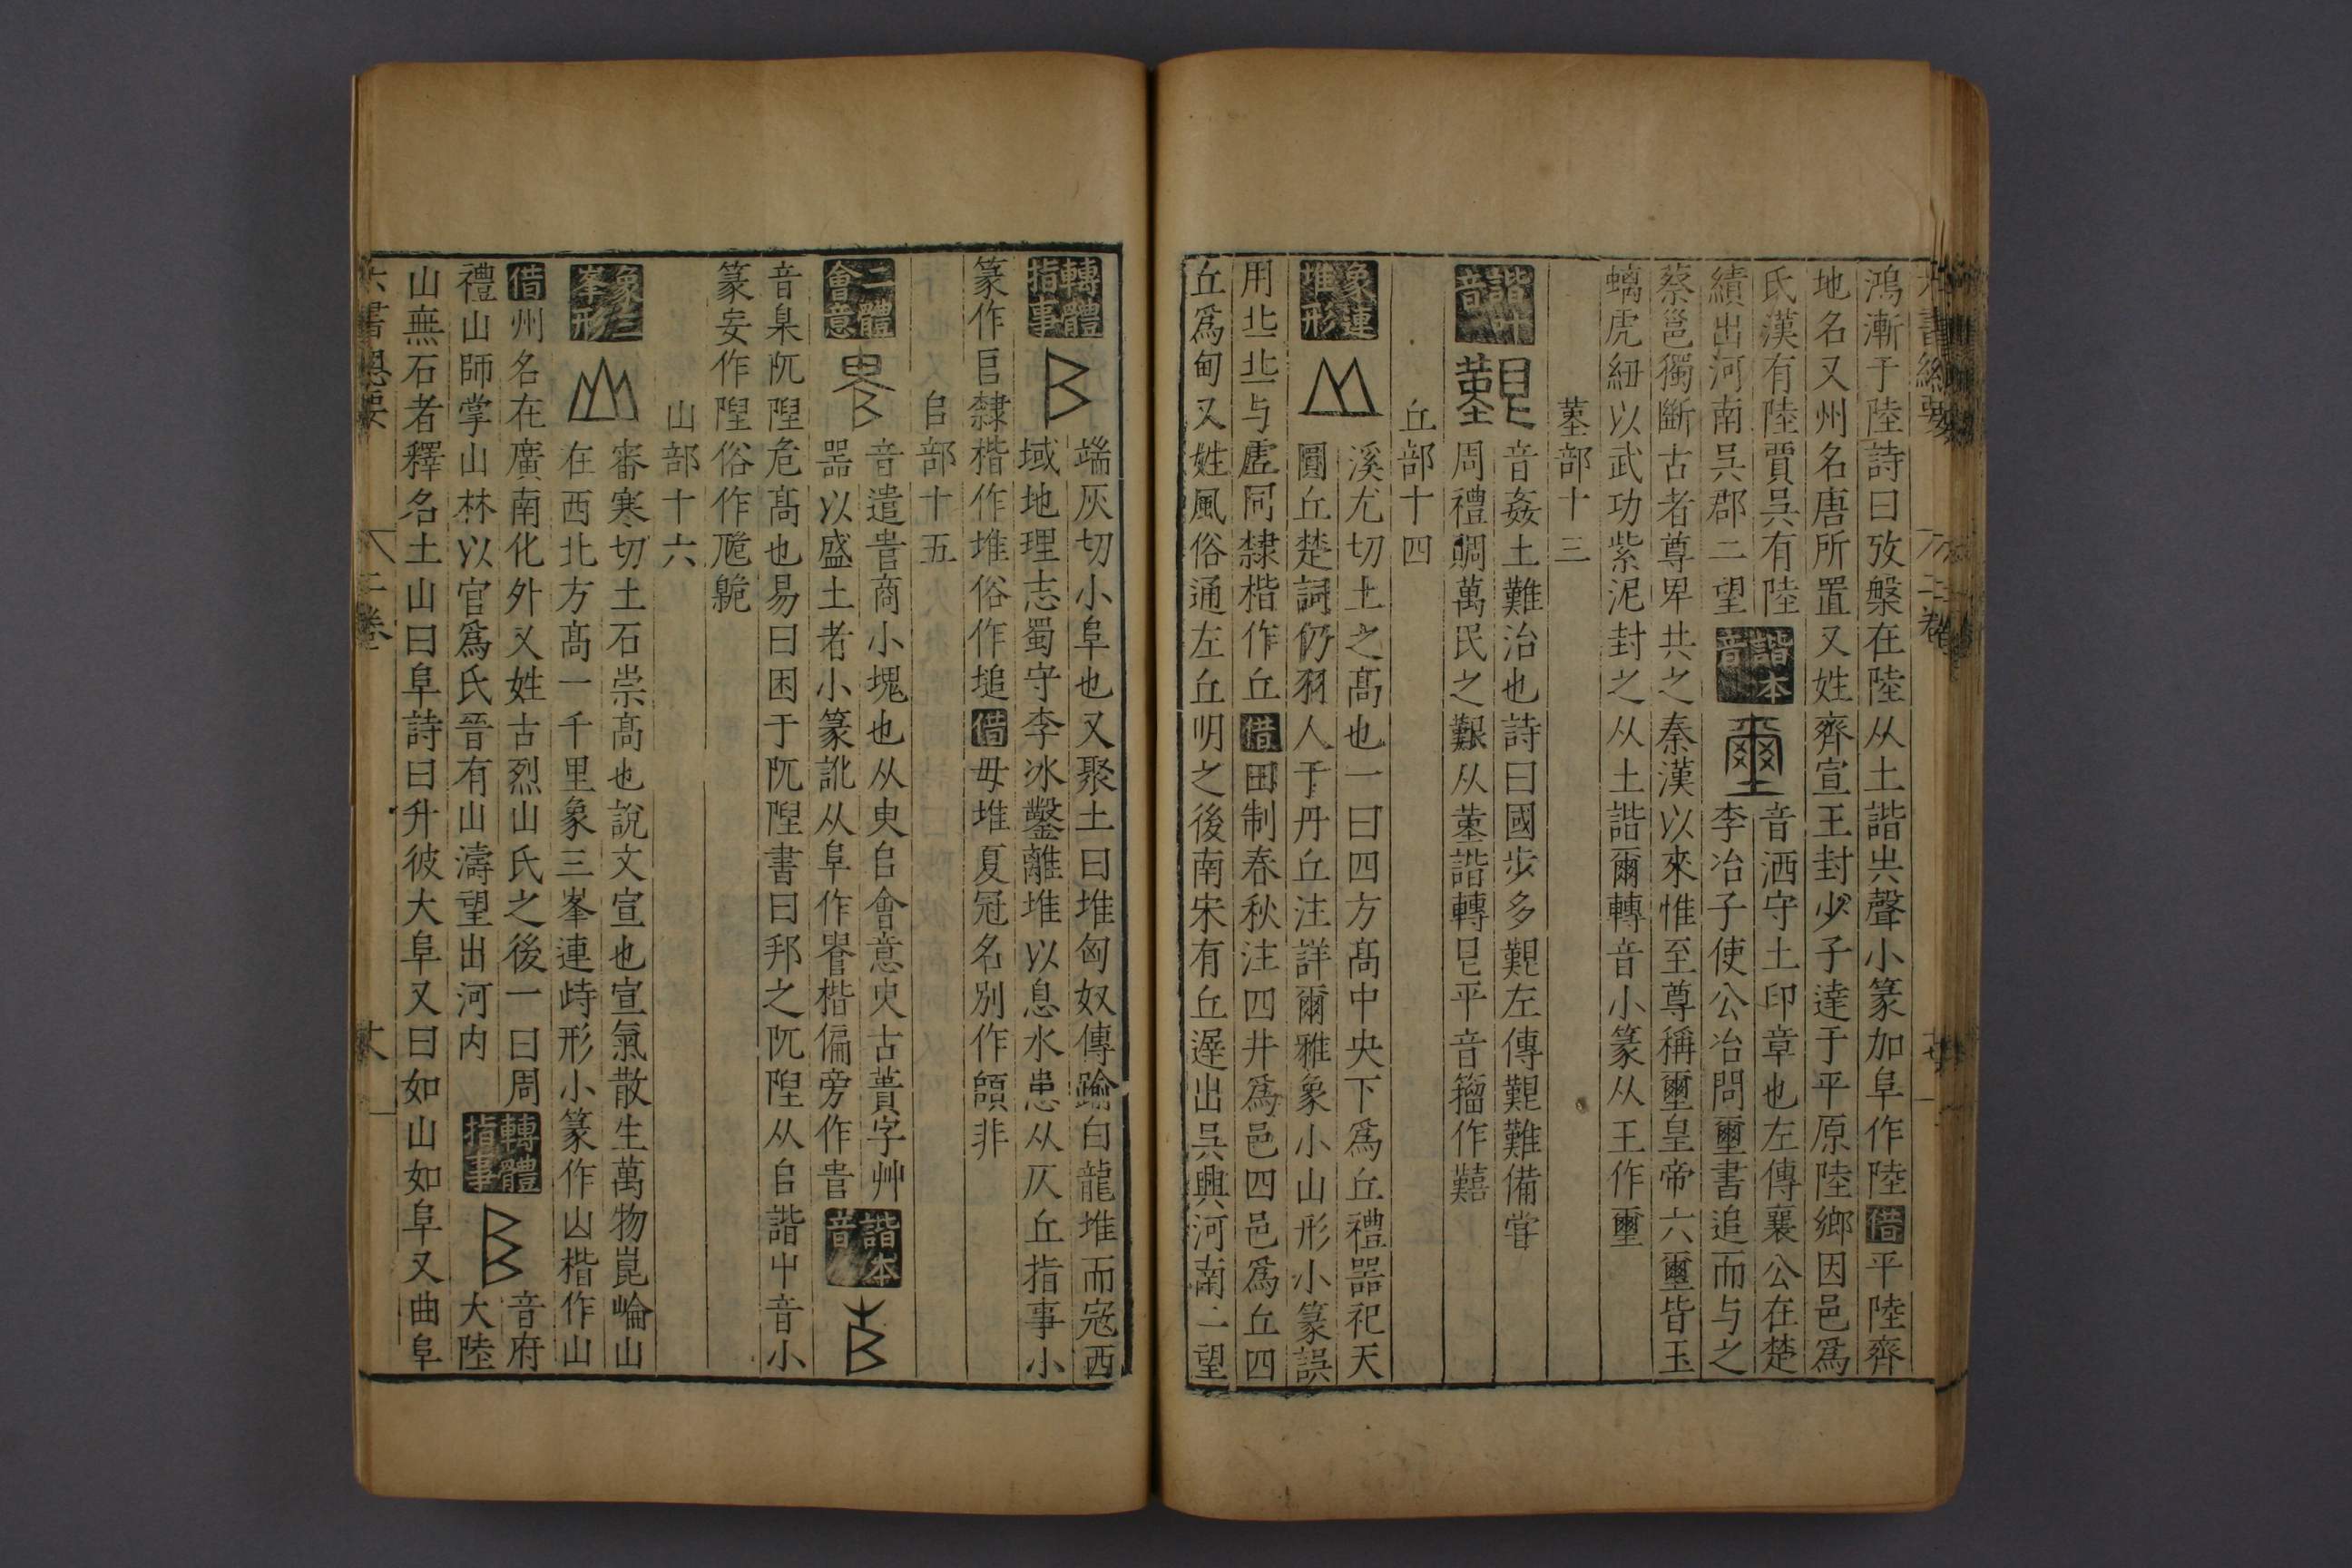 六書總要
二卷
鴻漸于陸詩曰攷槃在陸从土諧圥聲小篆加阜作陸借平陸齊
地名又州名唐所置又姓齊宣王封少子達于平原陸鄉因邑爲
氏漢有陸賈吳有陸
績出河南吳郡二望
諧本音
音洒守土印章也左傳襄公在楚
李冶子使公冶問璽書追而与之
蔡邕獨斷古者尊卑共之秦漢以來惟至尊稱璽皇帝六璽皆玉
螭虎紐以武功紫泥封之从土諧爾轉音小篆从王作璽
堇部十三
音姦土難治也詩曰國步多艱左傳艱難備嘗
周禮賙萬民之艱从堇諧轉皀平音籀作囏
丘部十四
象連堆形
溪尤切土之髙也一曰四方髙中央下爲丘禮器祀天
圓丘楚詞仍羽人于丹丘注詳爾雅象小山形小篆誤
用北北与虗同隸楷作丘借田制春秋注四井爲邑四邑爲丘四
丘爲甸又姓風俗通左丘明之後南宋有丘遅出吳興河南二望
轉體指事
端灰切小阜也又聚土曰堆匈奴傳踰白龍堆而寇西
域地理志蜀守李冰鑿離堆以息水患从仄丘指事小
篆作𠂤隸楷作堆俗作塠借毋堆夏冠名別作頧非
𠂤部十五
二體會意
音遣𠳋商小塊也从臾𠂤會意臾古蕢字艸
噐以盛土者小篆訛从阜作𠳋楷偏旁作𠳋
諧本音
音臬阢隉危髙也易曰困于阢隉書曰邦之阢隉从𠂤諧屮音小
篆妄作隉俗作卼臲
山部十六
象三峯形
審寒切土石崇髙也說文宣也宣氣散生萬物崑崘山
在西北方髙一千里象三峯連峙形小篆作山楷作山
借州名在廣南化外又姓古烈山氏之後一曰周
禮山師掌山林以官爲氏晉有山濤望出河内
轉體指事
音府
大陸
山無石者釋名土山曰阜詩曰升彼大阜又曰如山如阜又曲阜
六書總要
二卷